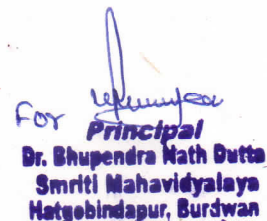 For
Principal
Dr. Bhupendra Nath Dutta
Smriti Mahavidyalaya
Hatgobindapur, Burdwan